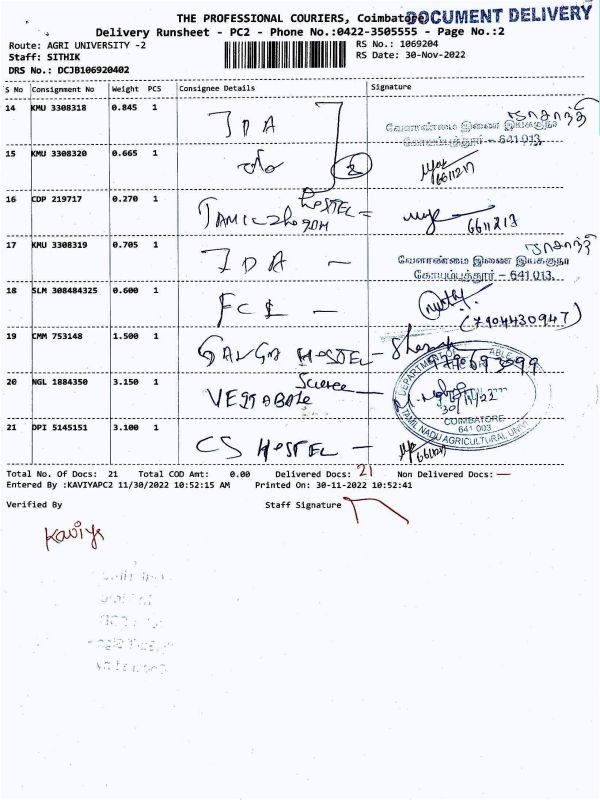 THE PROFESSIONAL COURIERS, Coimbatore
DOCUMENT DELIVERY
Delivery Runsheet - PC2 - Phone No.:0422-3505555 - Page No.:2
Route: AGRI UNIVERSITY -2
RS No.: 1069204
Staff: SITHIK
RS Date: 30-Nov-2022
DRS No.: DCJB106920402
S No Consignment No Weight PCS Consignee Details Signature
14 KMU 3308318 0.845 1 JDA
வேளாண்மை இணை இயக்குநர்
கோயம்புத்தூர் - 641 013.
15 KMU 3308320 0.665 1 do 2
16 CDP 219717 0.270 1 HOSTEL
6611213
17 KMU 3308319 0.705 1 JDA -
வேளாண்மை இணை இயக்குநர்
கோயம்புத்தூர் - 641 013.
18 SLM 308484325 0.600 1 FCI -
(7904430947)
19 CMM 753148 1.500 1 HOSTEL -
20 NGL 1884350 3.150 1 Science
VEGTABALE
30/11/22
DEPARTMENT
TAMIL NADU AGRICULTURAL
COIMBATORE
641 003
21 DPI 5145151 3.100 1 CS HOSTEL -
Total No. Of Docs: 21 Total COD Amt: 0.00 Delivered Docs: 21 Non Delivered Docs: -
Entered By :KAVIYAPC2 11/30/2022 10:52:15 AM Printed On: 30-11-2022 10:52:41
Verified By Staff Signature
Kaviya